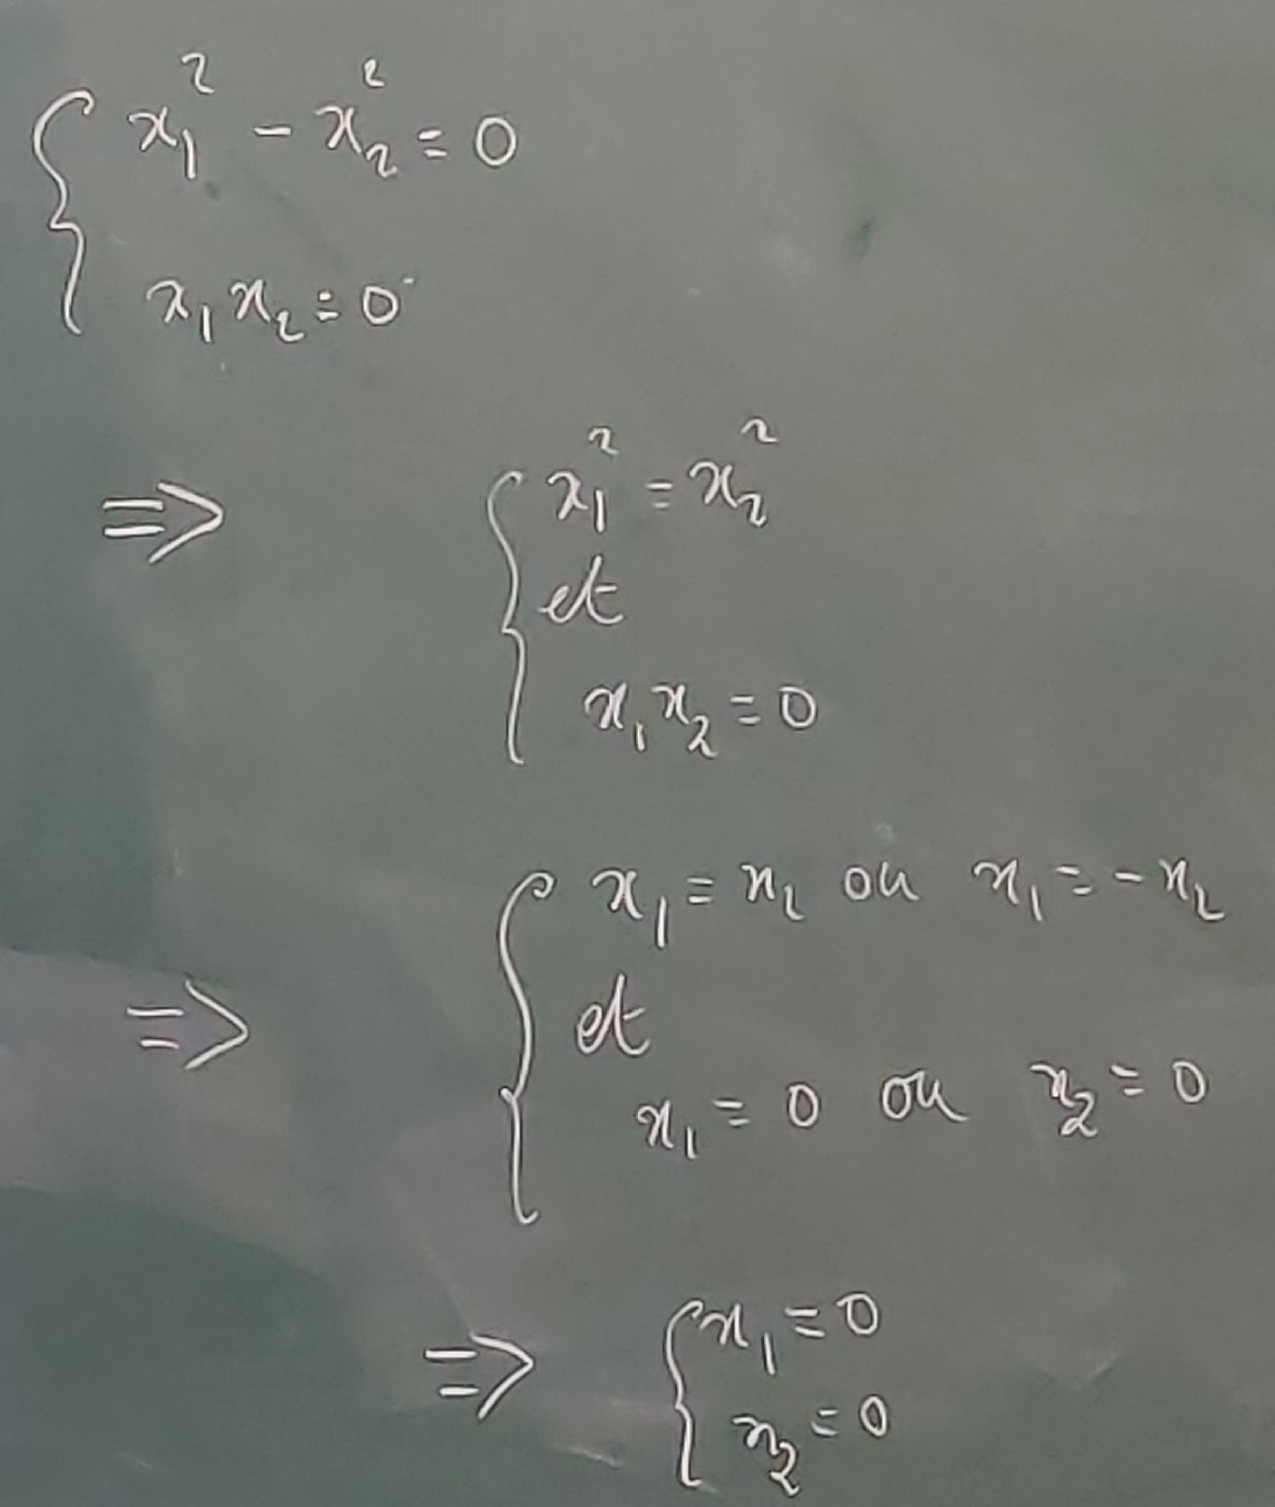 { x₁² - x₂² = 0
x₁x₂ = 0
⇒ { x₁² = x₂²
et
x₁x₂ = 0
{ x₁ = x₂ ou x₁ = -x₂
⇒ et
x₁ = 0 ou x₂ = 0
⇒ { x₁ = 0
x₂ = 0